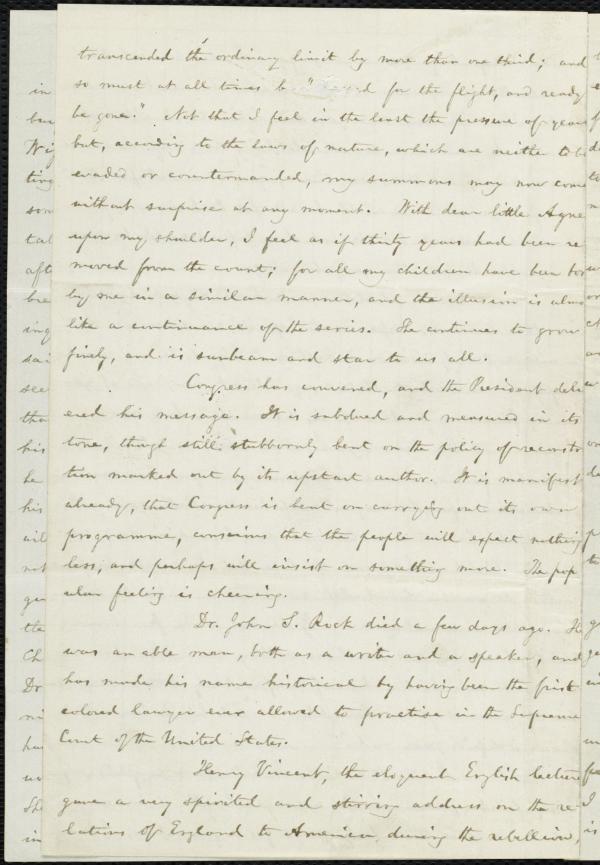 transcended the ordinary limit by more than one third; and
so must at all times be " for the flight, and ready
be gone." Not that I feel in the least the pressure of years
but, according to the laws of nature, which are neither to be
evaded or countermanded, my summons may now come
without surprise at any moment. With dear little Agne
upon my shoulder, I feel as if thirty years had been re
moved from the count; for all my children have been bor
by me in a similar manner, and the illusion is almo
like a continuance of the series. She continues to grow
finely, and is sunbeam and star to us all.
Congress has convened, and the President deliv
ered his message. It is subdued and measured in its
tone, though still stubbornly bent on the policy of reconstr
tion marked out by its upstart author. It is manifest
already, that Congress is bent on carrying out its own
programme, conscious that the people will expect nothing
less, and perhaps will insist on something more. The pop
ular feeling is cheering.
Dr. John S. Rock died a few days ago. He
was an able man, both as a writer and a speaker, and
has made his name historical by having been the first
colored lawyer ever allowed to practise in the Supreme
Court of the United States.
Henry Vincent, the eloquent English lecturer
gave a very spirited and stirring address on the re-
lations of England to America during the rebellion,